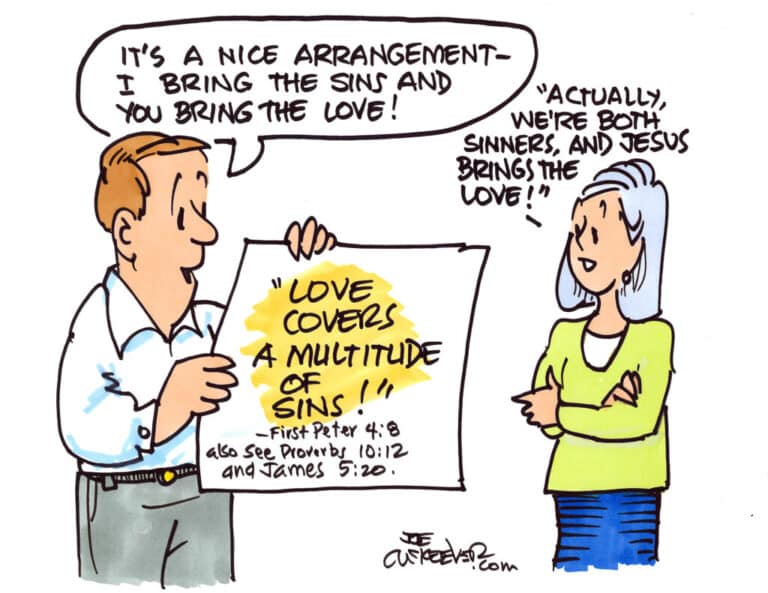 IT'S A NICE ARRANGEMENT—
I BRING THE SINS AND
YOU BRING THE LOVE!
"ACTUALLY,
WE'RE BOTH
SINNERS, AND JESUS
BRINGS THE
LOVE!"
"LOVE
COVERS
A MULTITUDE
OF
SINS!"
—First Peter 4:8
also see Proverbs 10:12
and James 5:20.
JOE
McKEEVER
.com